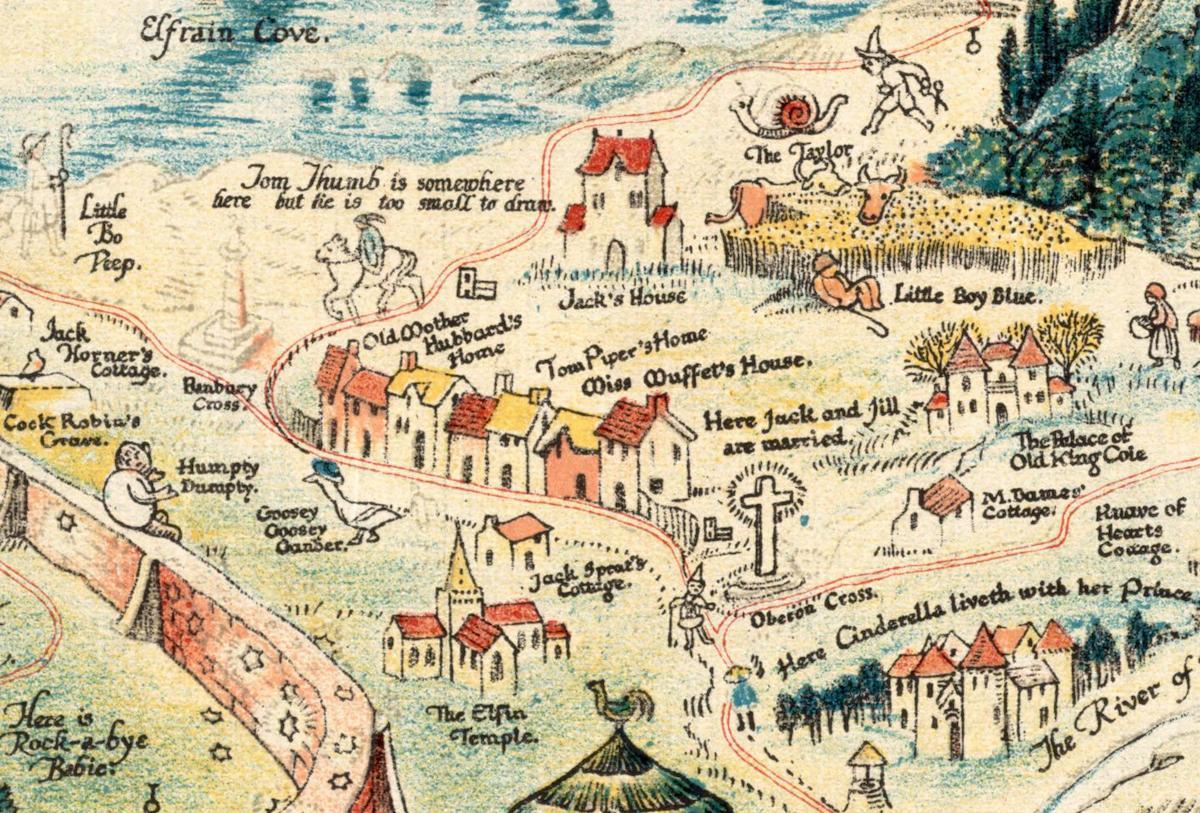 Elfrain Cove.
The Taylor
Tom Thumb is somewhere
here but he is too small to draw.
Little
Bo
Peep.
Jack's House
Little Boy Blue.
Old Mother
Hubbard's
Home
Tom Piper's Home
Miss Muffet's House.
Jack
Horner's
Cottage.
Banbury
Cross.
Cock Robin's
Grave.
Here Jack and Jill
are married.
The Palace of
Old King Cole
Humpty
Dumpty.
Goosey
Goosey
Gander.
M. Dames'
Cottage.
Knave of
Hearts
Cottage.
Jack Sprat's
Cottage.
Oberon Cross.
Here Cinderella liveth with her Prince
The Elfin
Temple.
The River of
Here is
Rock-a-bye
Babie.